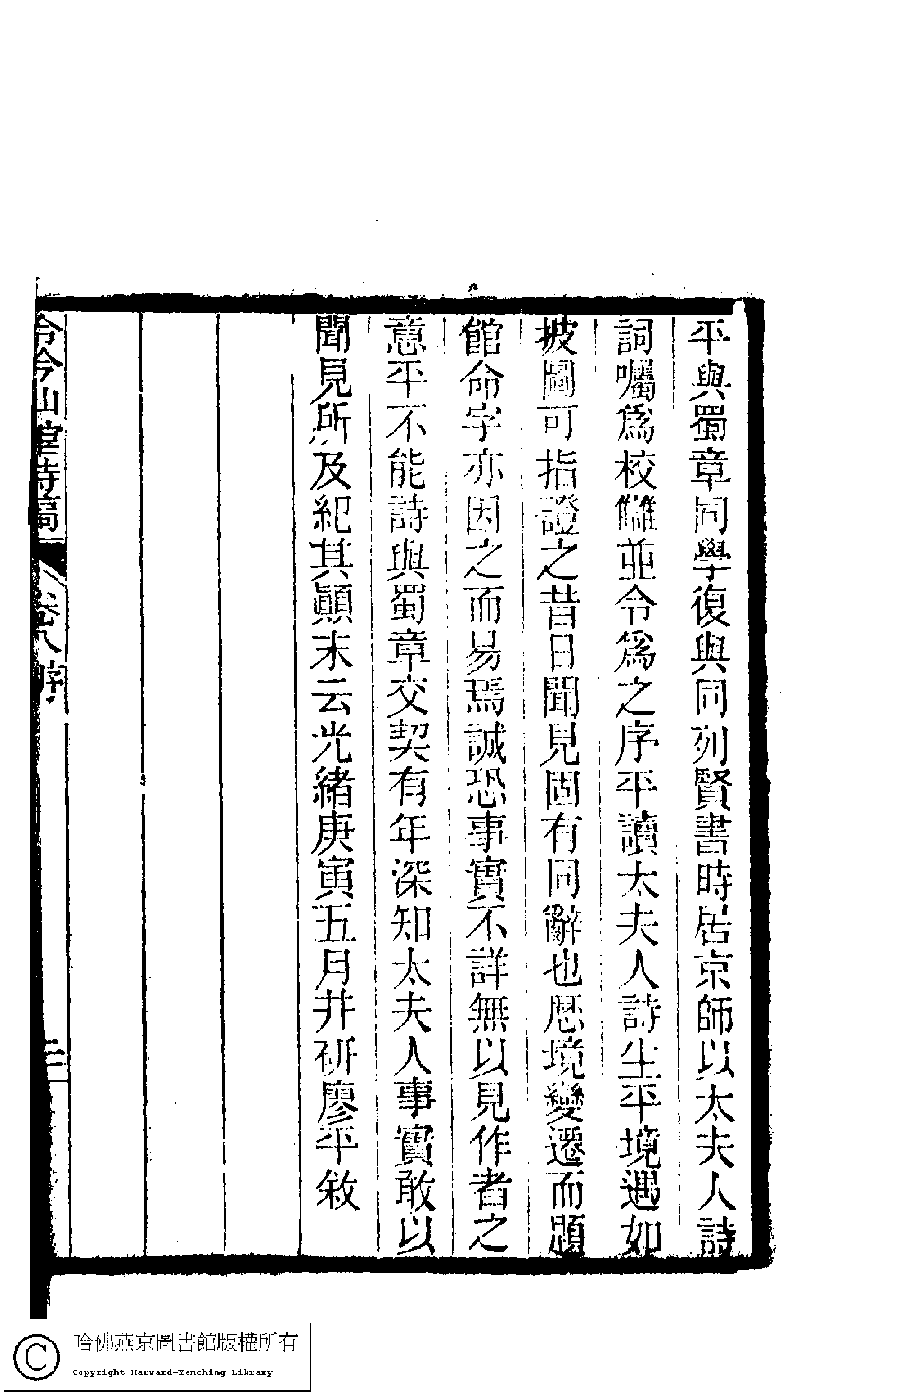 平與蜀章同學復與同列賢書時居京師以太夫人詩
詞囑爲校讎並令爲之序平讀太夫人詩生平境遇如
披圖可指證之昔日聞見固有同辭也厯境變遷而題
館命字亦因之而易焉誠恐事實不詳無以見作者之
意平不能詩與蜀章交契有年深知太夫人事實敢以
聞見所及紀其顚末云光緒庚寅五月井硏廖平敘
山館詩稿 卷八 二
哈佛燕京圖書館版權所有
Copyright Harvard-Yenching Library